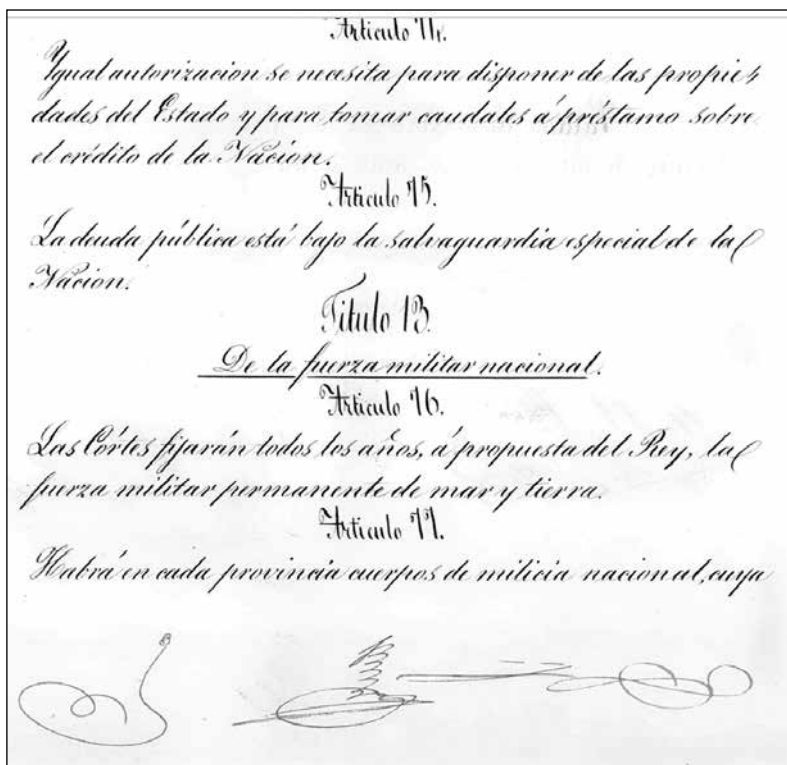 Artículo 74.
Ygual autorizacion se necesita para disponer de las propie
dades del Estado y para tomar caudales á préstamo sobre
el crédito de la Nacion.
Artículo 75.
La deuda pública está bajo la salvaguardia especial de la
Nacion.
Titulo 13.
De la fuerza militar nacional.
Artículo 76.
Las Córtes fijarán todos los años, á propuesta del Rey, la
fuerza militar permanente de mar y tierra.
Artículo 77.
Habrá en cada provincia cuerpos de milicia nacional, cuya